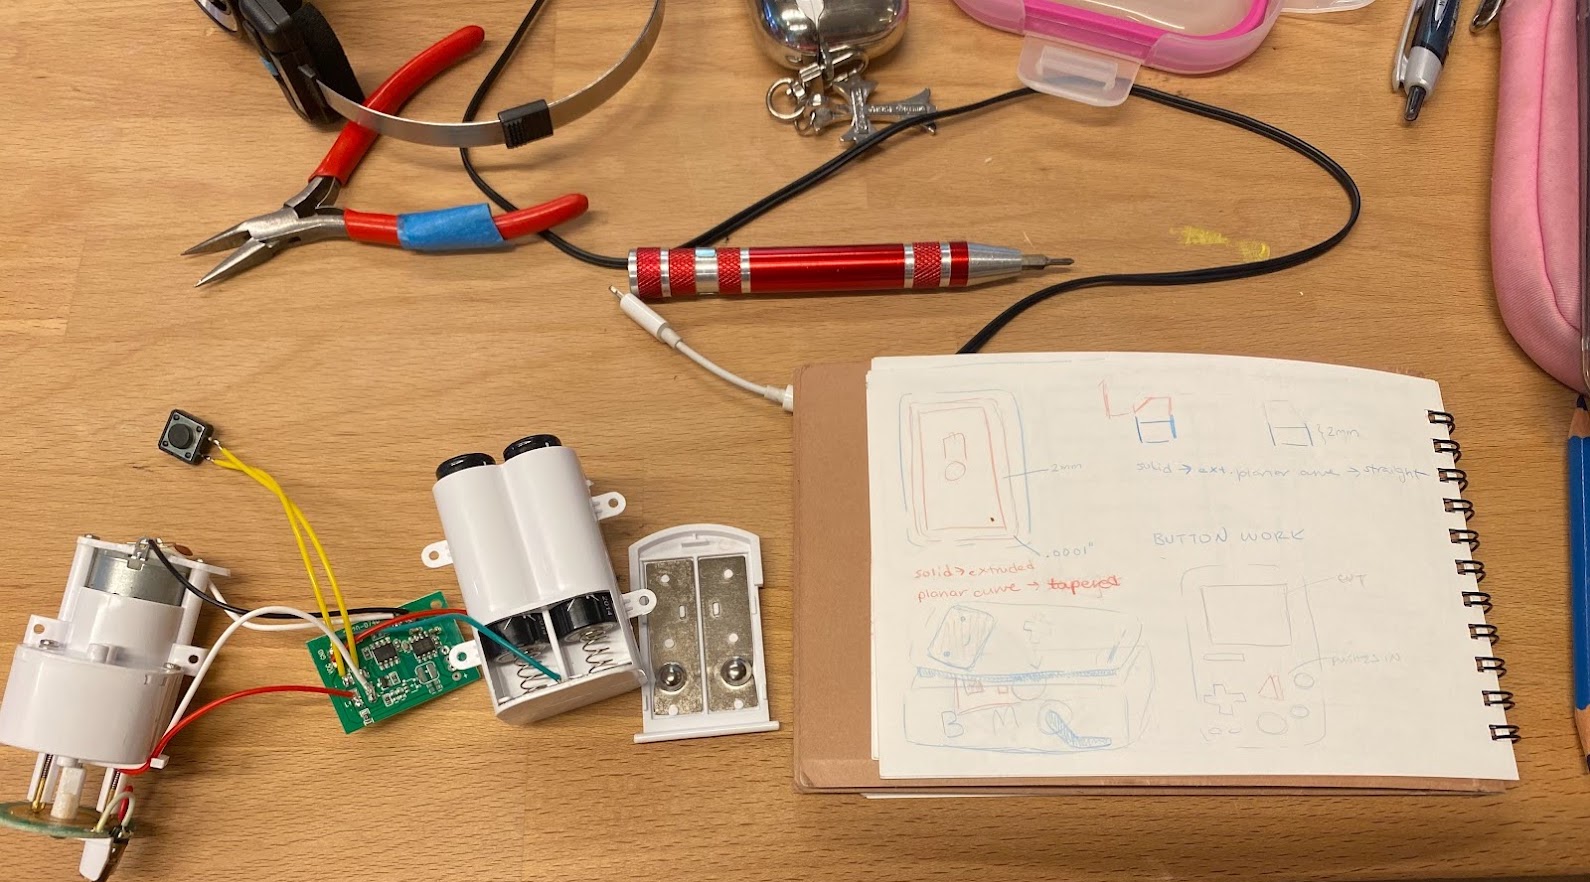 2mm
.0001"
solid → extruded
planar curve → tapered
}2mm
solid → ext. planar curve → straight
BUTTON WORK
CUT
PUSHES IN
B M